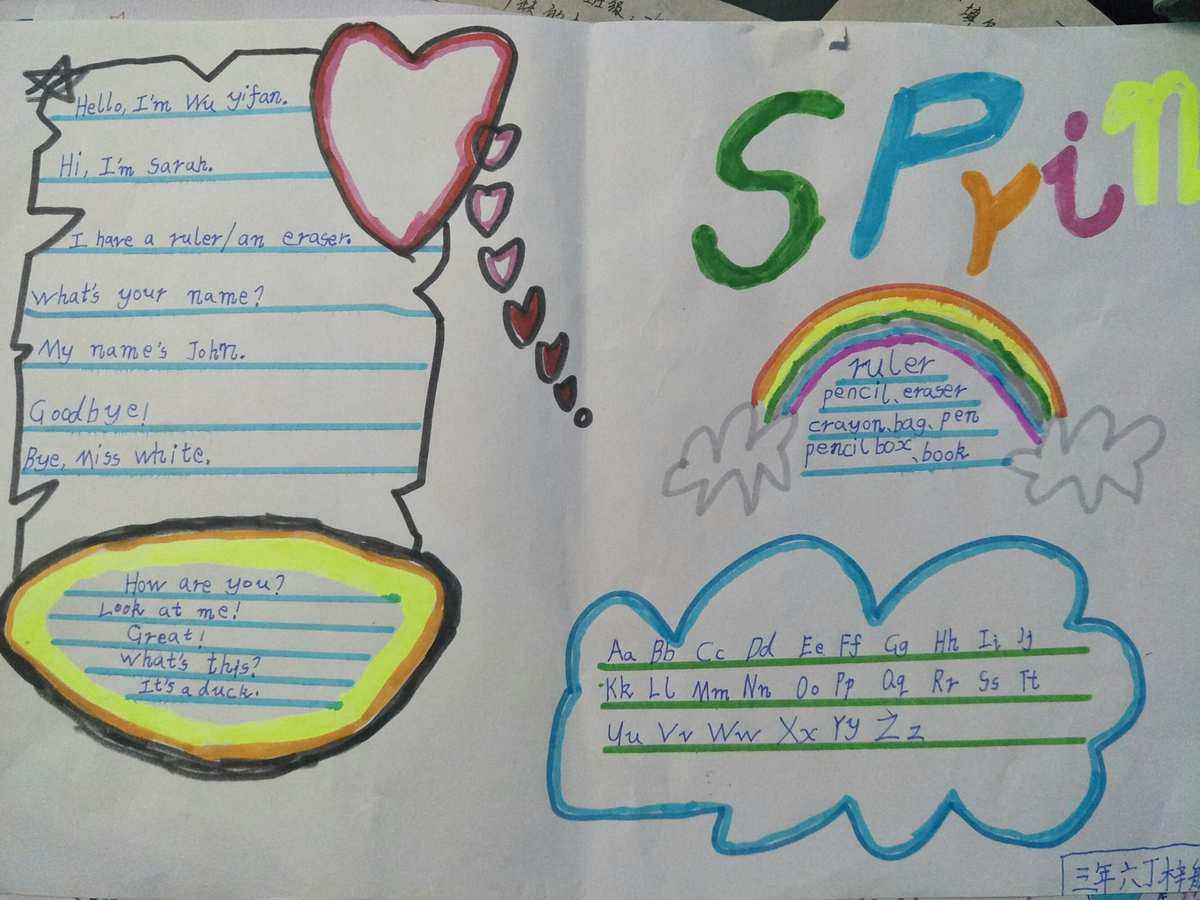 Hello, I'm Wu Yifan.
Hi, I'm Sarah.
I have a ruler/an eraser.
What's your name?
My name's John.
Goodbye!
Bye, Miss White.
How are you?
Look at me!
Great!
What's this?
It's a duck.
SPrin
ruler
pencil、eraser
crayon、bag、pen
pencil box、book
Aa Bb Cc Dd Ee Ff Gg Hh Ii Jj
Kk Ll Mm Nn Oo Pp Qq Rr Ss Tt
Uu Vv Ww Xx Yy Zz
三年六丁梓